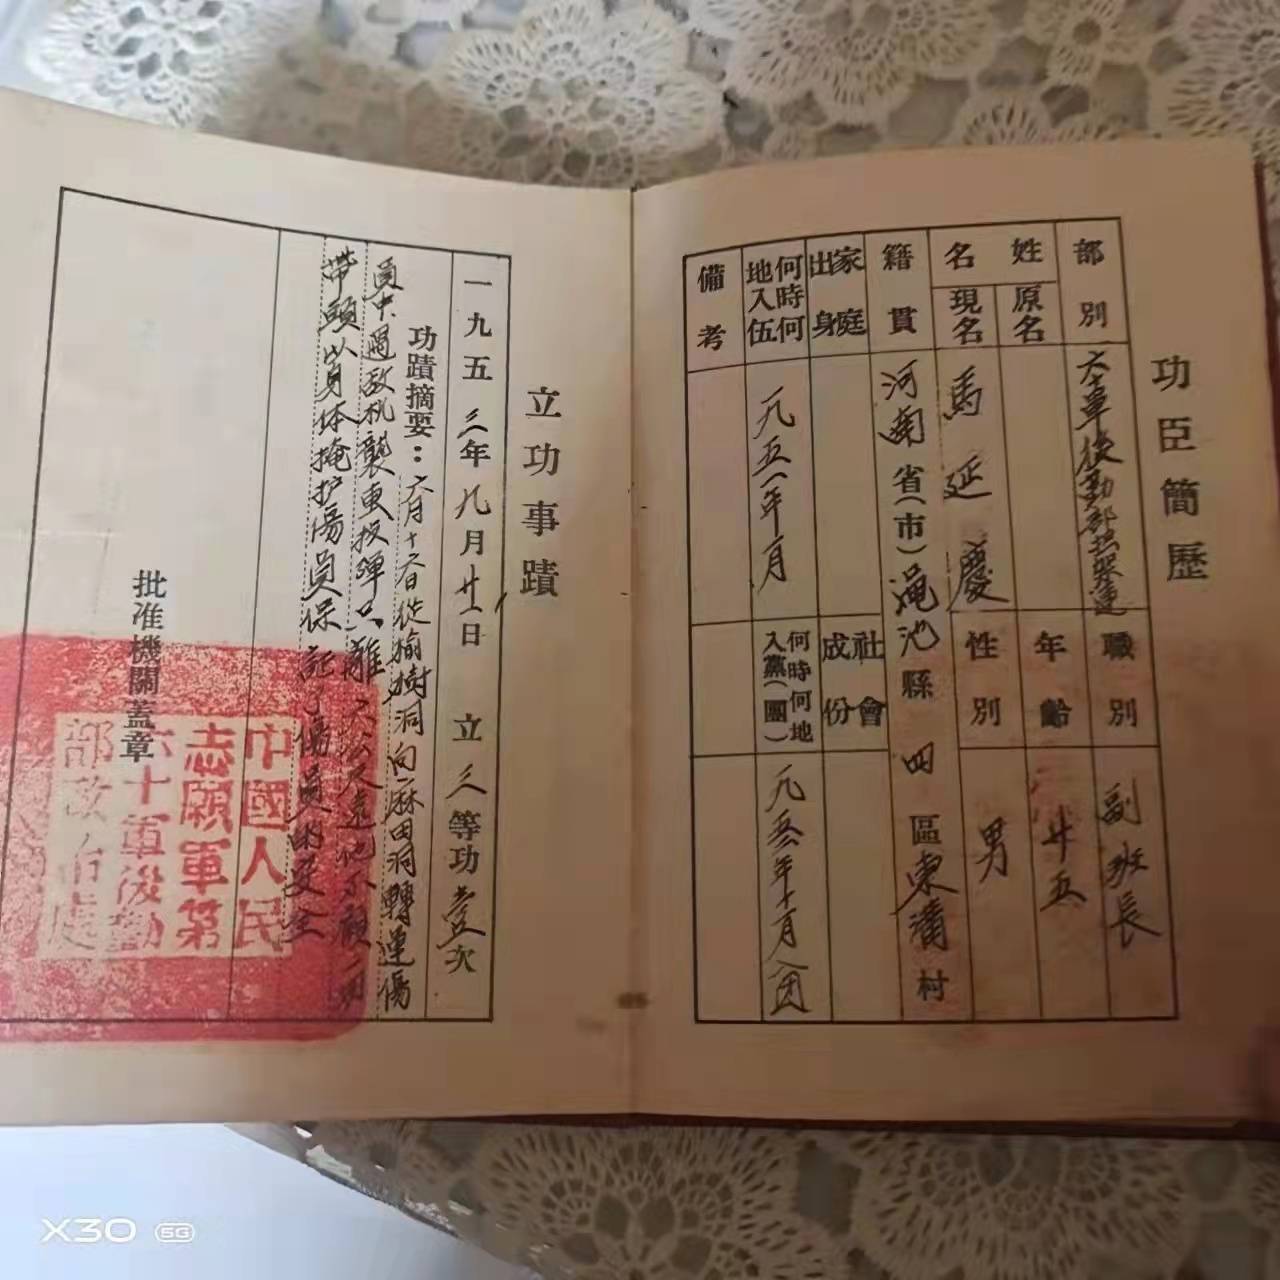 功臣簡歷
部別
六十軍後勤部担架連
職別
副班長
姓名
原名
現名
馬延慶
年齡
廿五
性別
男
籍貫
河南省(市)澠池縣四區東溝村
家庭出身
社會成份
何時何地入伍
一九五一年一月
何時何地入黨(團)
一九五三年十月入团
備考
立功事蹟
一九五三年九月廿一日 立三等功壹次
功蹟摘要：六月十六日從榆樹洞向麻田洞轉運傷
員中遇敌机襲击投彈
带頭以身体掩护傷員保証了傷員的安全
批准機關蓋章
中國人民
志願軍第
六十軍後勤
部政治處
X30 5G